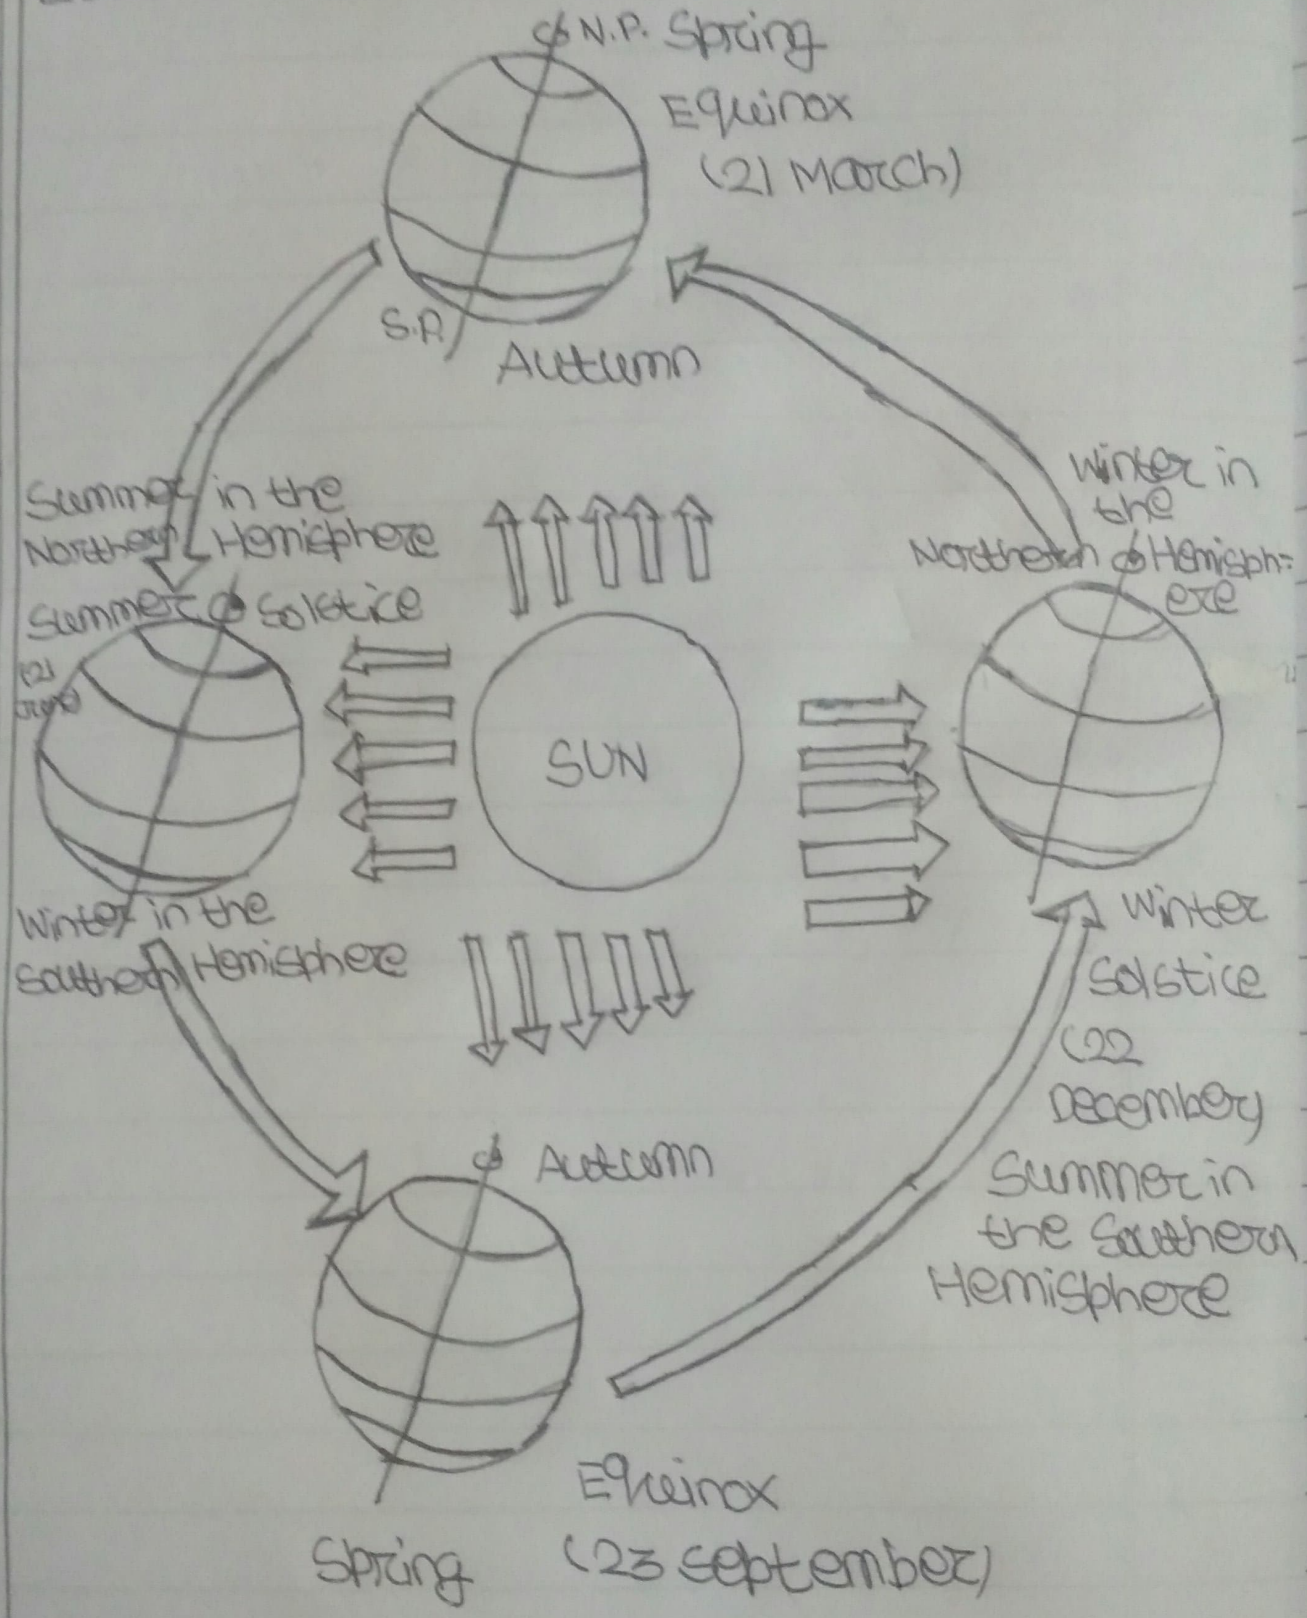 N.P. Spring
Equinox
(21 March)
S.P.
Autumn
Summer in the
Northern Hemisphere
Summer Solstice
(21
June)
Winter in
the
Northern Hemisph=
ere
SUN
Winter in the
Southern Hemisphere
Winter
Solstice
(22
December)
Summer in
the Southern
Hemisphere
Autumn
Equinox
(23 September)
Spring